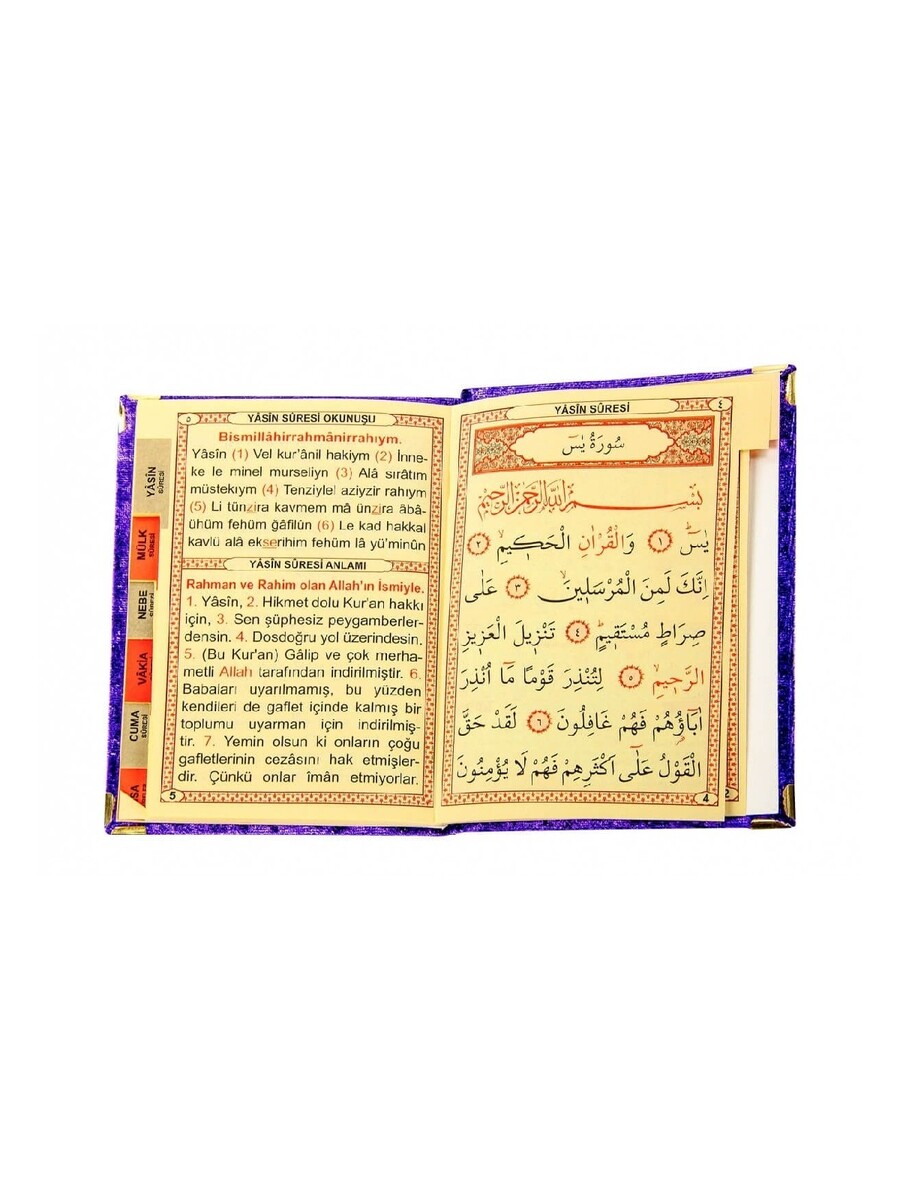 YÂSÎN
SÛRESİ
MÜLK
SÛRESİ
NEBE
VÂKİA
CUMA
SÛRESİ
٥
YÂSÎN SÛRESİ OKUNUŞU
Bismillâhirrahmânirrahıym.
Yâsîn (1) Vel kur'ânil hakiym (2) İnne-
ke le minel murseliyn (3) Alâ sırâtım
müstekıym (4) Tenziylel aziyzir rahıym
(5) Li tünzira kavmem mâ ünzira âbâ-
ühüm fehüm ğâfilûn (6) Le kad hakkal
kavlü alâ ekserihim fehüm lâ yü'minûn
YÂSÎN SÛRESİ ANLAMI
Rahman ve Rahim olan Allah'ın İsmiyle.
1. Yâsîn, 2. Hikmet dolu Kur'an hakkı
için, 3. Sen şüphesiz peygamberler-
densin. 4. Dosdoğru yol üzerindesin.
5. (Bu Kur'an) Gâlip ve çok merha-
metli Allah tarafından indirilmiştir. 6.
Babaları uyarılmamış, bu yüzden
kendileri de gaflet içinde kalmış bir
toplumu uyarman için indirilmiş-
tir. 7. Yemin olsun ki onların çoğu
gafletlerinin cezasını hak etmişler-
dir. Çünkü onlar îmân etmiyorlar.
5
YÂSÎN SÛRESİ
٤
سُورَةُ يٰسٓ
بِسْمِ اللّٰهِ الرَّحْمٰنِ الرَّحٖيمِ
يٰسٓ ﴿١﴾ وَالْقُرْاٰنِ الْحَكٖيمِۙ ﴿٢﴾
اِنَّكَ لَمِنَ الْمُرْسَلٖينَۙ ﴿٣﴾ عَلٰى
صِرَاطٍ مُسْتَقٖيمٍؕ ﴿٤﴾ تَنْزٖيلَ الْعَزٖيزِ
الرَّحٖيمِۙ ﴿٥﴾ لِتُنْذِرَ قَوْمًا مَٓا اُنْذِرَ
اٰبَٓاؤُ۬هُمْ فَهُمْ غَافِلُونَ ﴿٦﴾ لَقَدْ حَقَّ
الْقَوْلُ عَلٰٓى اَكْثَرِهِمْ فَهُمْ لَا يُؤْمِنُونَ
4
2